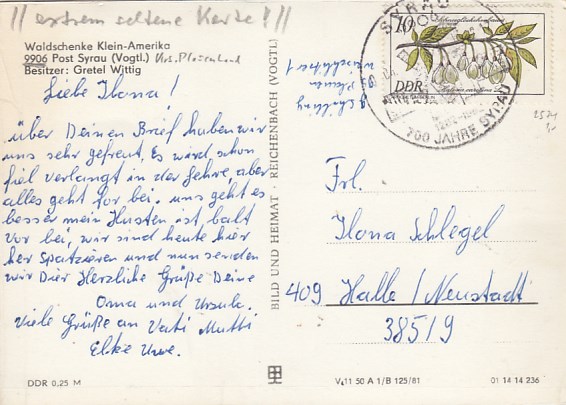 // extrem seltene Karte! //
Waldschenke Klein-Amerika
9906 Post Syrau (Vogtl.) Krs. Plauen-Land
Besitzer: Gretel Wittig
Liebe Ilona!
über Deinen Brief haben wir
uns sehr gefreut, Es wird schon
fiel verlangt in der Lehre, aber
alles geht for bei. uns geht es
besser mein Husten ist balt
vor bei, wir sind heute hier
her Spatzieren und nun senden
wir Dier Herzliche Grüße Deine
Oma und Ursula.
Viele Grüße an Vati Mutti
Elke Uwe.
DDR 0,25 M
BILD UND HEIMAT · REICHENBACH (VOGTL)
SYRAU
700 JAHRE SYRAU
10
DDR
2571
Frl.
Ilona Schlegel
409 Halle/Neustadt
385/9
V 11 50 A 1/B 125/81
01 14 14 236